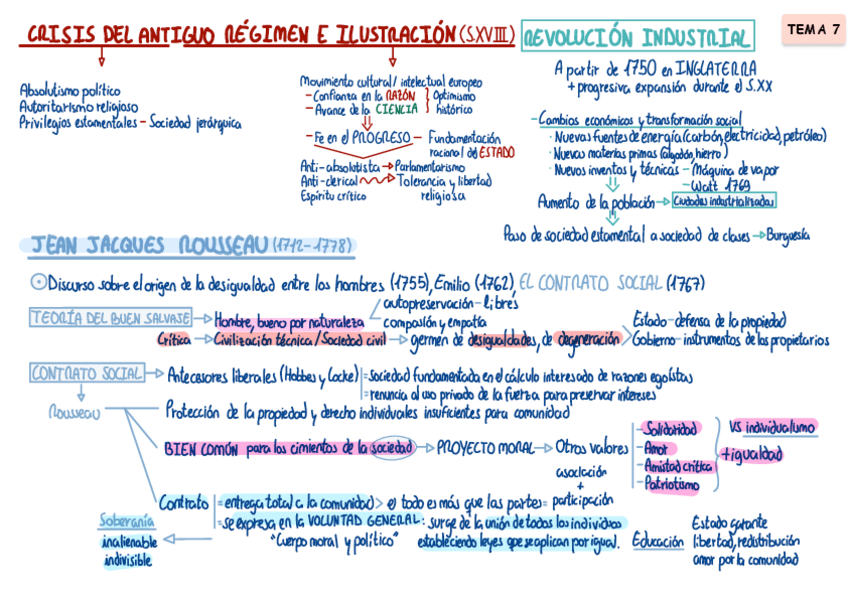 CRISIS DEL ANTIGUO RÉGIMEN E ILUSTRACIÓN (S.XVIII)
Absolutismo político
Autoritarismo religioso
Privilegios estamentales - Sociedad jerárquica
Movimiento cultural/intelectual europeo
- Confianza en la RAZÓN
- Avance de la CIENCIA
Optimismo
histórico
- Fe en el PROGRESO - Fundamentación
racional del ESTADO
Anti-absolutista → Parlamentarismo
Anti-clerical → Tolerancia y libertad
religiosa
Espíritu crítico
REVOLUCIÓN INDUSTRIAL
TEMA 7
A partir de 1750 en INGLATERRA
+ progresiva expansión durante el S.XX
- Cambios económicos y transformación social
· Nuevas fuentes de energía (carbón, electricidad, petróleo)
· Nuevas materias primas (algodón, hierro)
· Nuevos inventos y técnicas - Máquina de vapor
- Watt 1769
Aumento de la población → Ciudades industrializadas
Paso de sociedad estamental a sociedad de clases → Burguesía
JEAN JACQUES ROUSSEAU (1712-1778)
Discurso sobre el origen de la desigualdad entre los hombres (1755), Emilio (1762), EL CONTRATO SOCIAL (1767)
TEORÍA DEL BUEN SALVAJE → Hombre, bueno por naturaleza
autopreservación - libres
compasión y empatía
Crítica → Civilización técnica/Sociedad civil → germen de desigualdades, de degeneración
Estado - defensa de la propiedad
Gobierno - instrumentos de los propietarios
CONTRATO SOCIAL → Antecesores liberales (Hobbes y Locke)
= sociedad fundamentada en el cálculo interesado de razones egoístas
= renuncia al uso privado de la fuerza para preservar intereses
Rousseau
Protección de la propiedad y derecho individuales insuficientes para comunidad
BIEN COMÚN para los cimientos de la sociedad → PROYECTO MORAL → Otros valores
asociación
+
participación
- Solidaridad
- Amor
- Amistad crítica
- Patriotismo
VS individualumo
+ igualdad
Contrato
= entrega total a la comunidad > el todo es más que las partes =
= se expresa en la VOLUNTAD GENERAL: surge de la unión de todos los individuos
"Cuerpo moral y político"
estableciendo leyes que se aplican por igual.
Soberanía
inalienable
indivisible
Educación
Estado garante
libertad, redistribución
amor por la comunidad